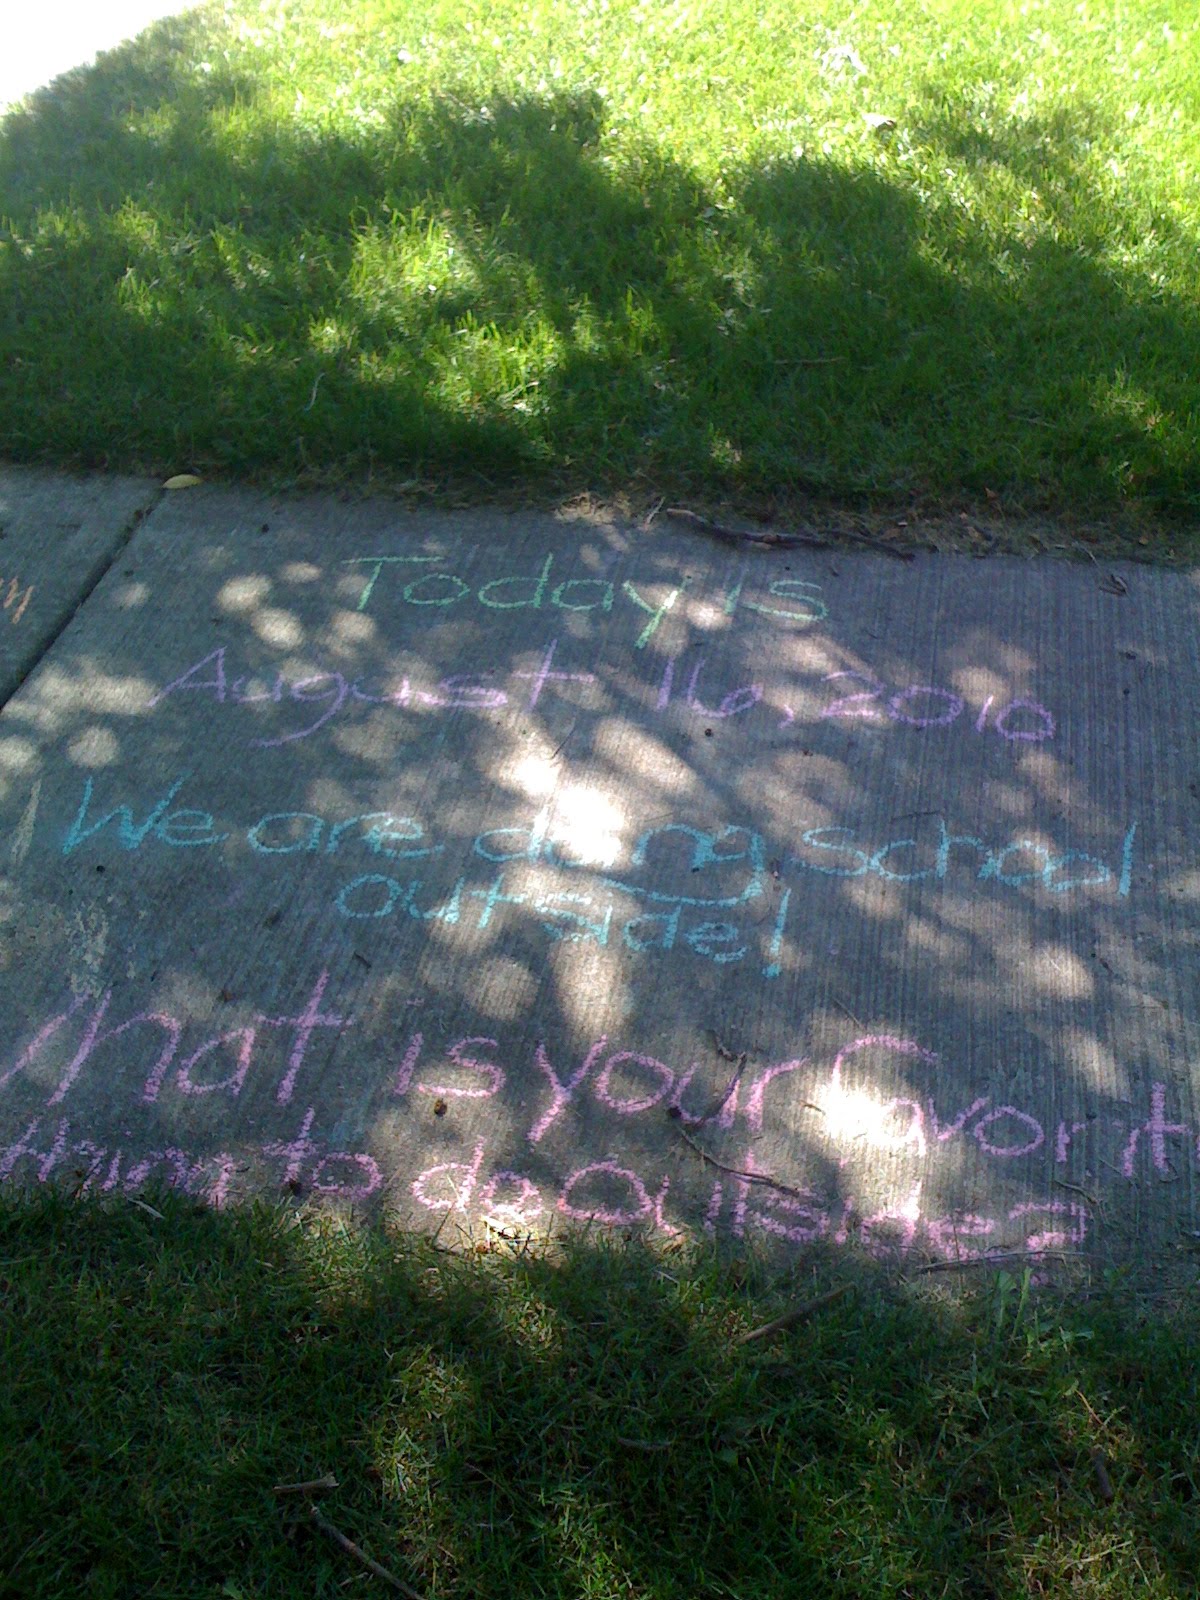 Today is
August 16, 2010
We are doing school
outside!
What is your favorit
thing to do outside?